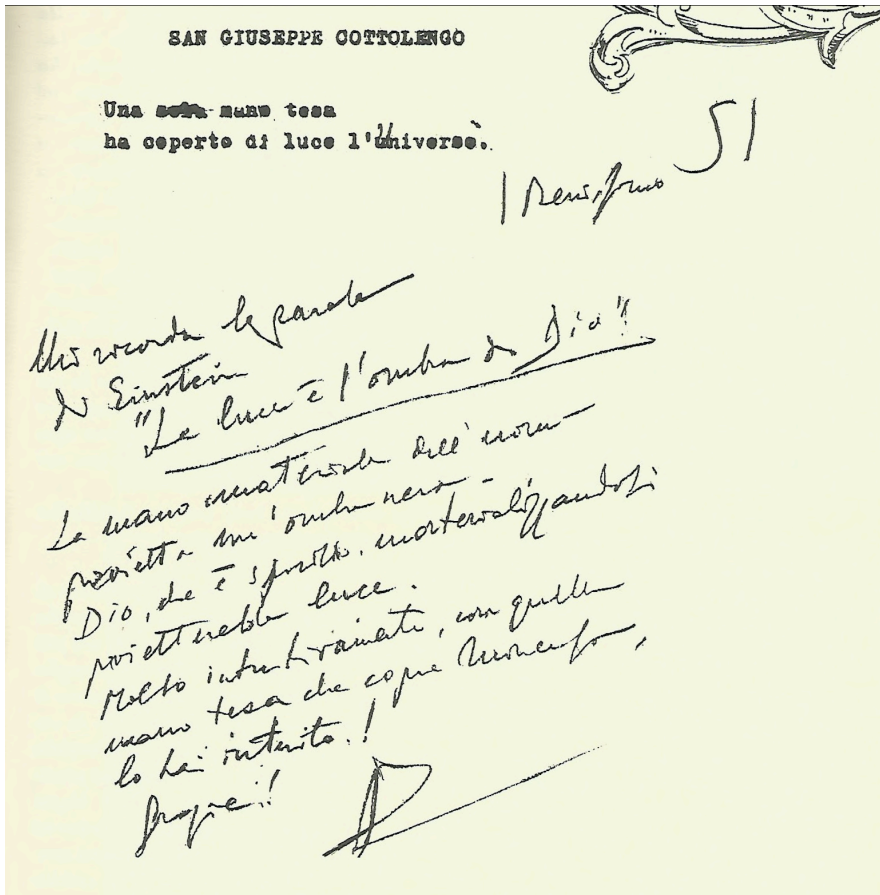 SAN GIUSEPPE COTTOLENGO
Una sola mano tesa
ha coperto di luce l'universo.
SI
Mi ricorda le parole
di Einstein
"La luce è l'ombra di Dio"!
La mano materiale dell'uomo
proietta un'ombra nera -
Dio, che è spirito, materializzandosi
proietterebbe luce.
Molto intuitivamente, con quella
mano tesa che copre
lo hai intuito.!
Grazie!!